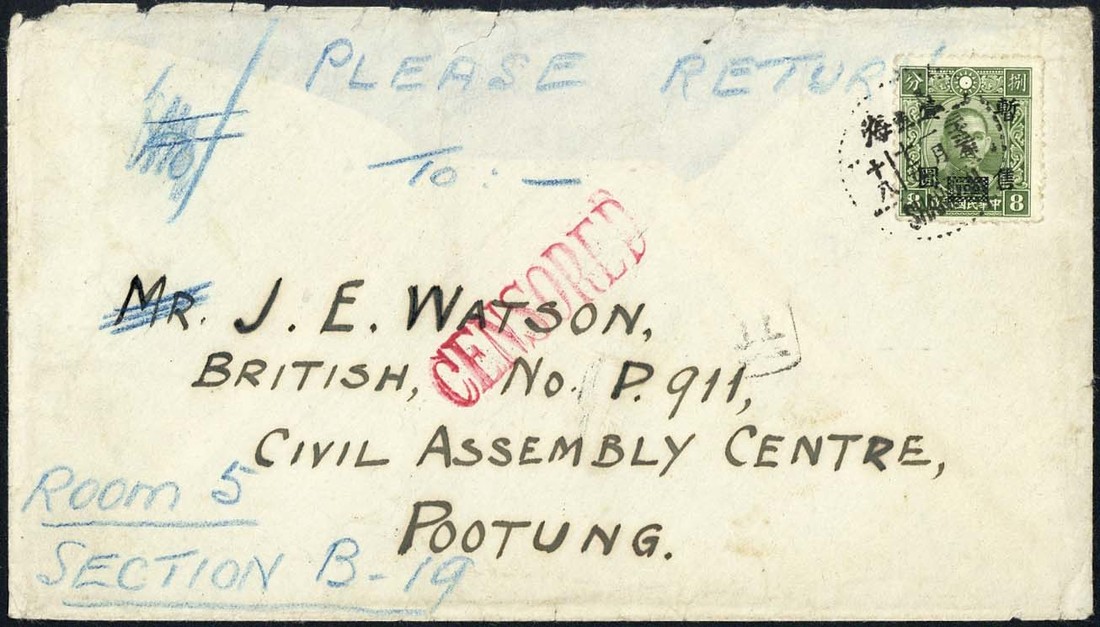 PLEASE RETUR
TO: —
CENSORED
MR. J. E. WATSON,
BRITISH, No. P. 911,
CIVIL ASSEMBLY CENTRE,
POOTUNG.
ROOM 5
SECTION B-19
分 捌
暫
售
圓
8 中華民國 8
海